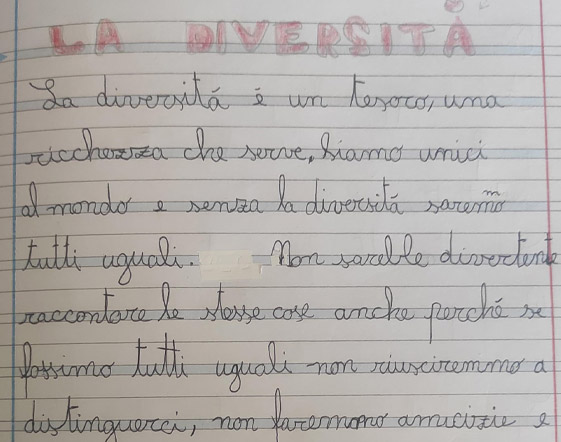 LA DIVERSITÀ
La diversitá é un tesoro, una
ricchezza che serve. Siamo unici
al mondo e senza la diversitá saremmo
tutti uguali. Non sarebbe divertente
raccontare le stesse cose anche perché se
fossimo tutti uguali non riusciremmo a
distinguerci, non faremmo amicizie e